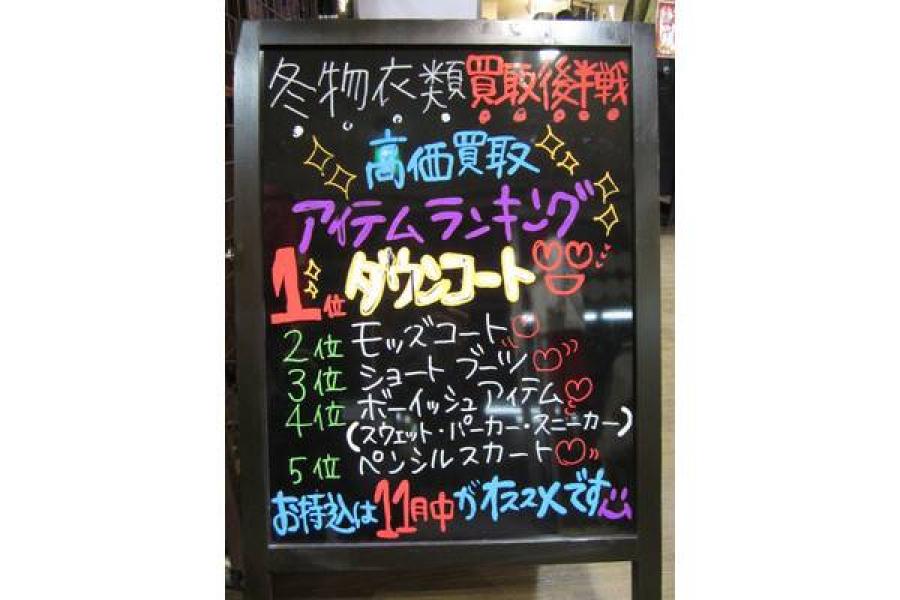 冬物衣類買取後半戦
高価買取
アイテムランキング
1位 ダウンコート
2位 モッズコート
3位 ショートブーツ
4位 ボーイッシュアイテム
(スウェット・パーカー・スニーカー)
5位 ペンシルスカート
お持込は11月中がオススメです